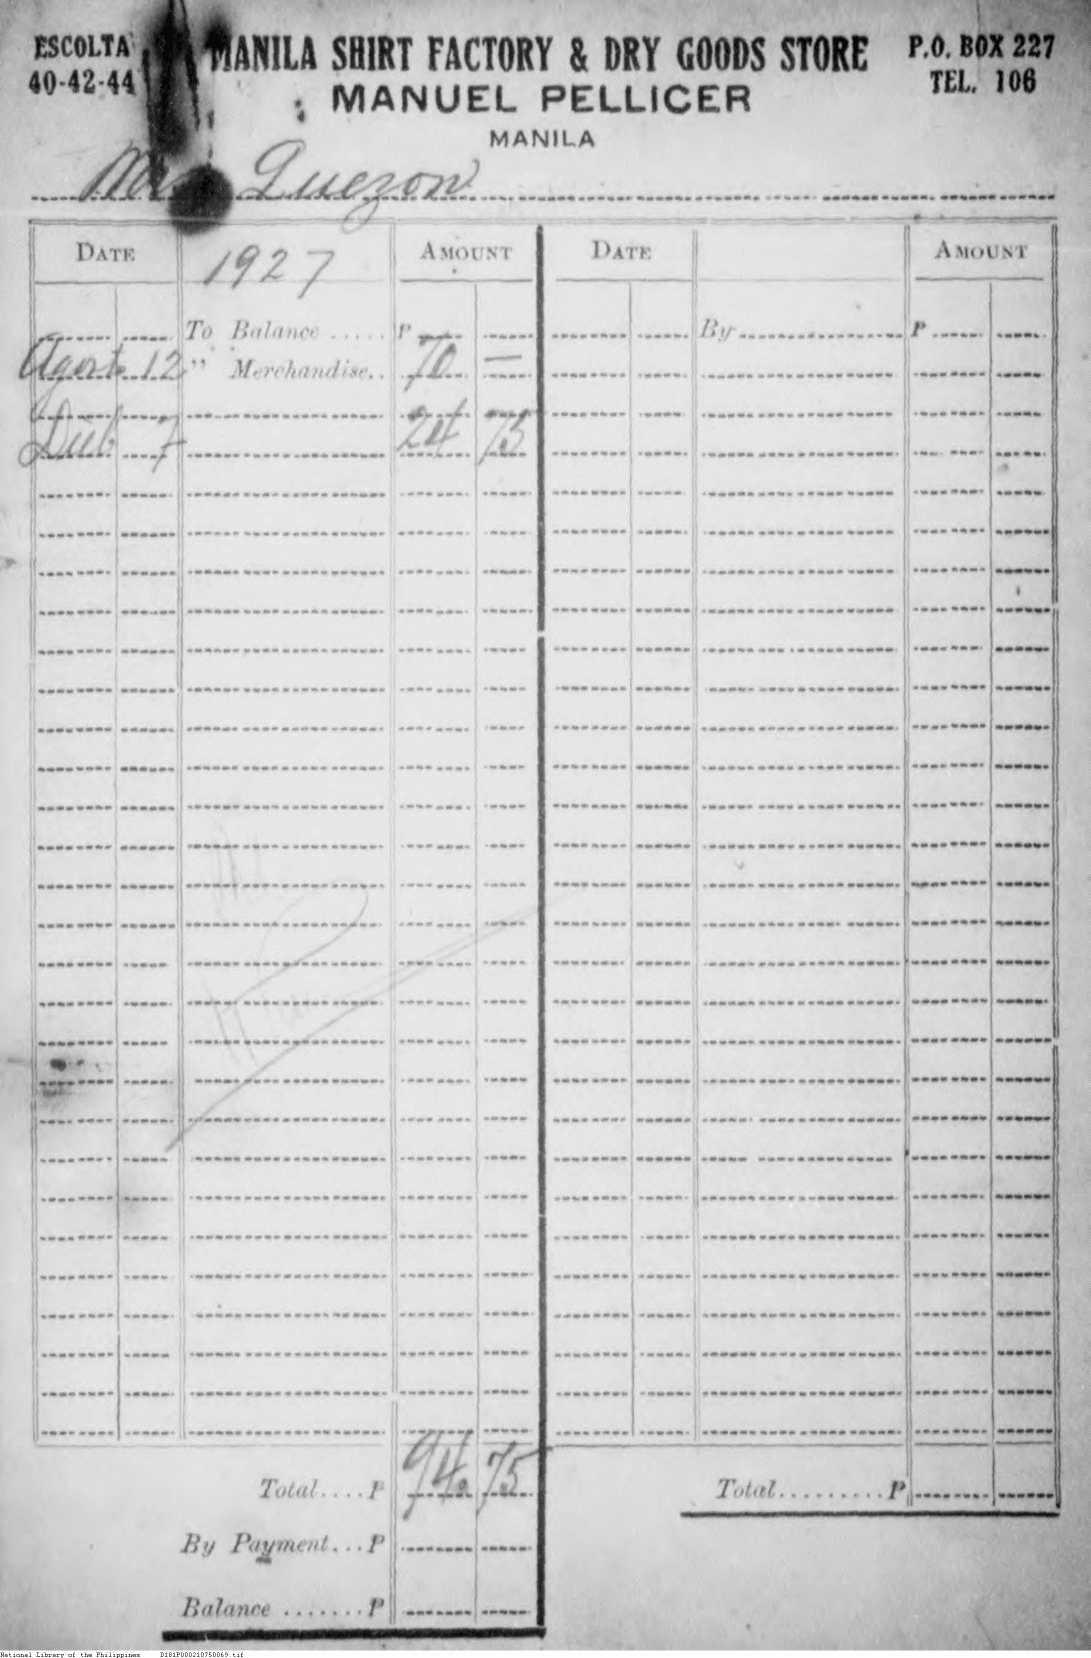 ESCOLTA
40-42-44
MANILA SHIRT FACTORY & DRY GOODS STORE
MANUEL PELLICER
MANILA
P.O. BOX 227
TEL. 106
Quezon
DATE 1927 AMOUNT DATE AMOUNT
To Balance ..... ₱ By ₱
Agosto 12 " Merchandise.. 70 —
7 24 75
Total....₱ 94.75 Total.........₱
By Payment...₱
Balance .......₱
National Library of the Philippines D181P000210750069.tif